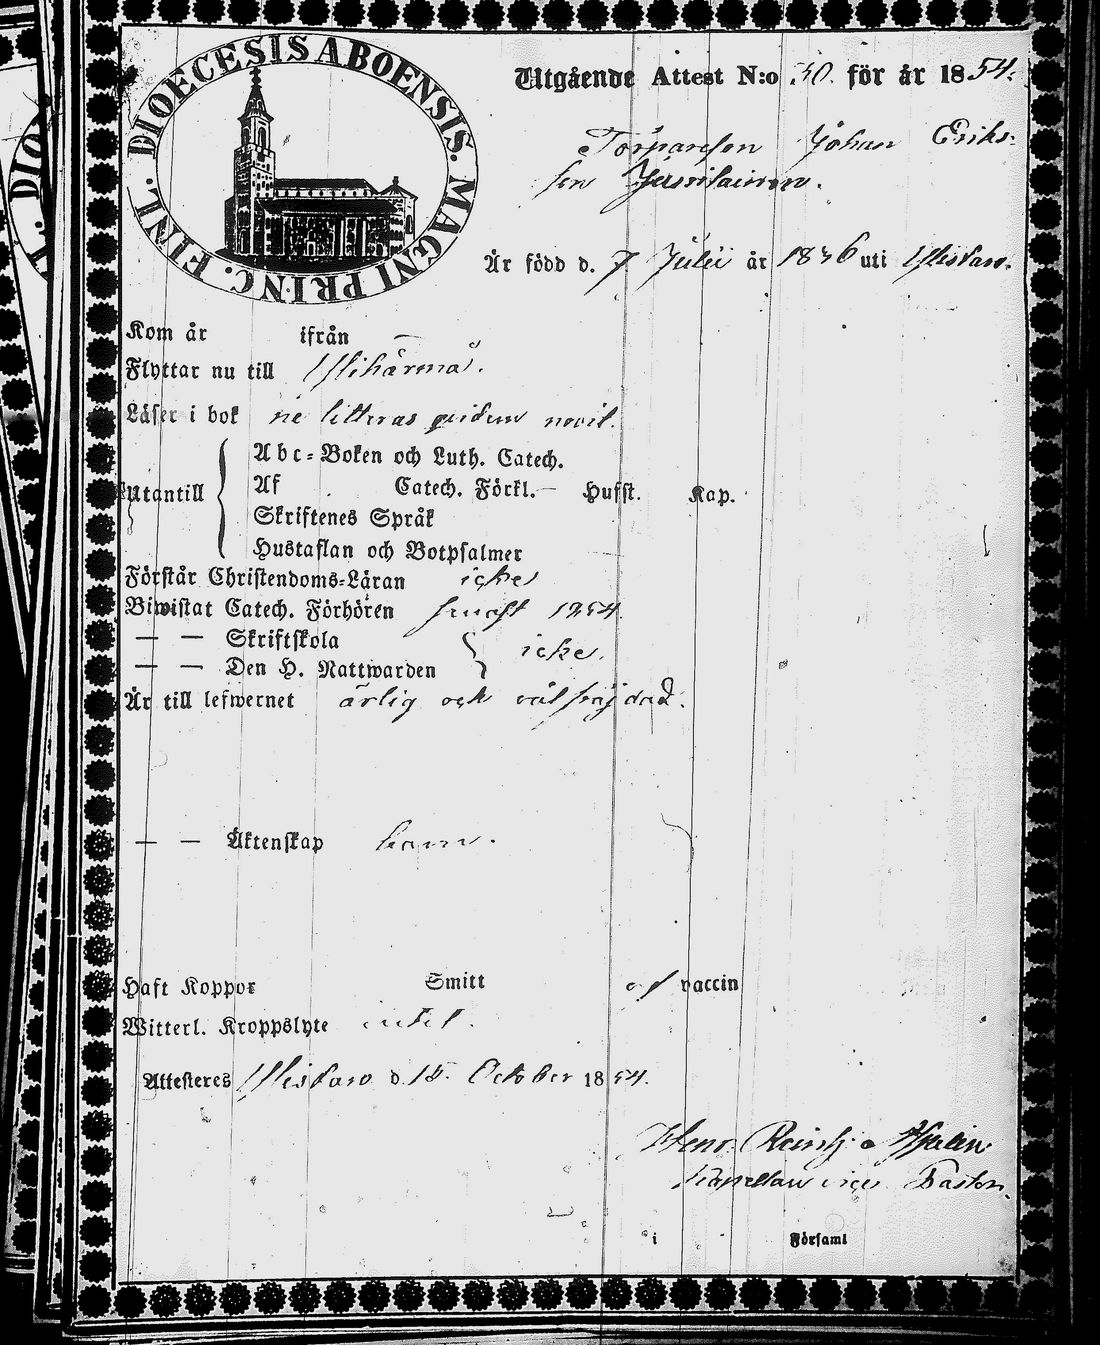 DIOECESIS ABOENSIS. MAGNI PRINC. FINL.
Utgående Attest N:o 30. för år 1854.
Torparson Johan Eriks-
son
Är född d. 7 Julii år 1836 uti Ylistaro.
Kom år ifrån —
Flyttar nu till Ylihärmä.
Läser i bok ne litteras quidem novit.
Utantill
Abc-Boken och Luth. Catech.
Af Catech. Förkl. — Husst. Kap.
Skriftenes Språk
Hustaflan och Botpsalmer
Förstår Christendoms-Läran icke
Biwistat Catech. Förhören 1854.
— — Skriftskola
— — Den H. Nattwarden icke.
Är till lefwernet ärlig och välfräjdad.
— — Äktenskap barn.
Haft Koppor Smitt af vaccin
Witterl. Kroppslyte intet.
Attesteres Ylistaro d. 15. October 1854.
Henr. Reinh.
Kapellan vice Pastor.
i Församl